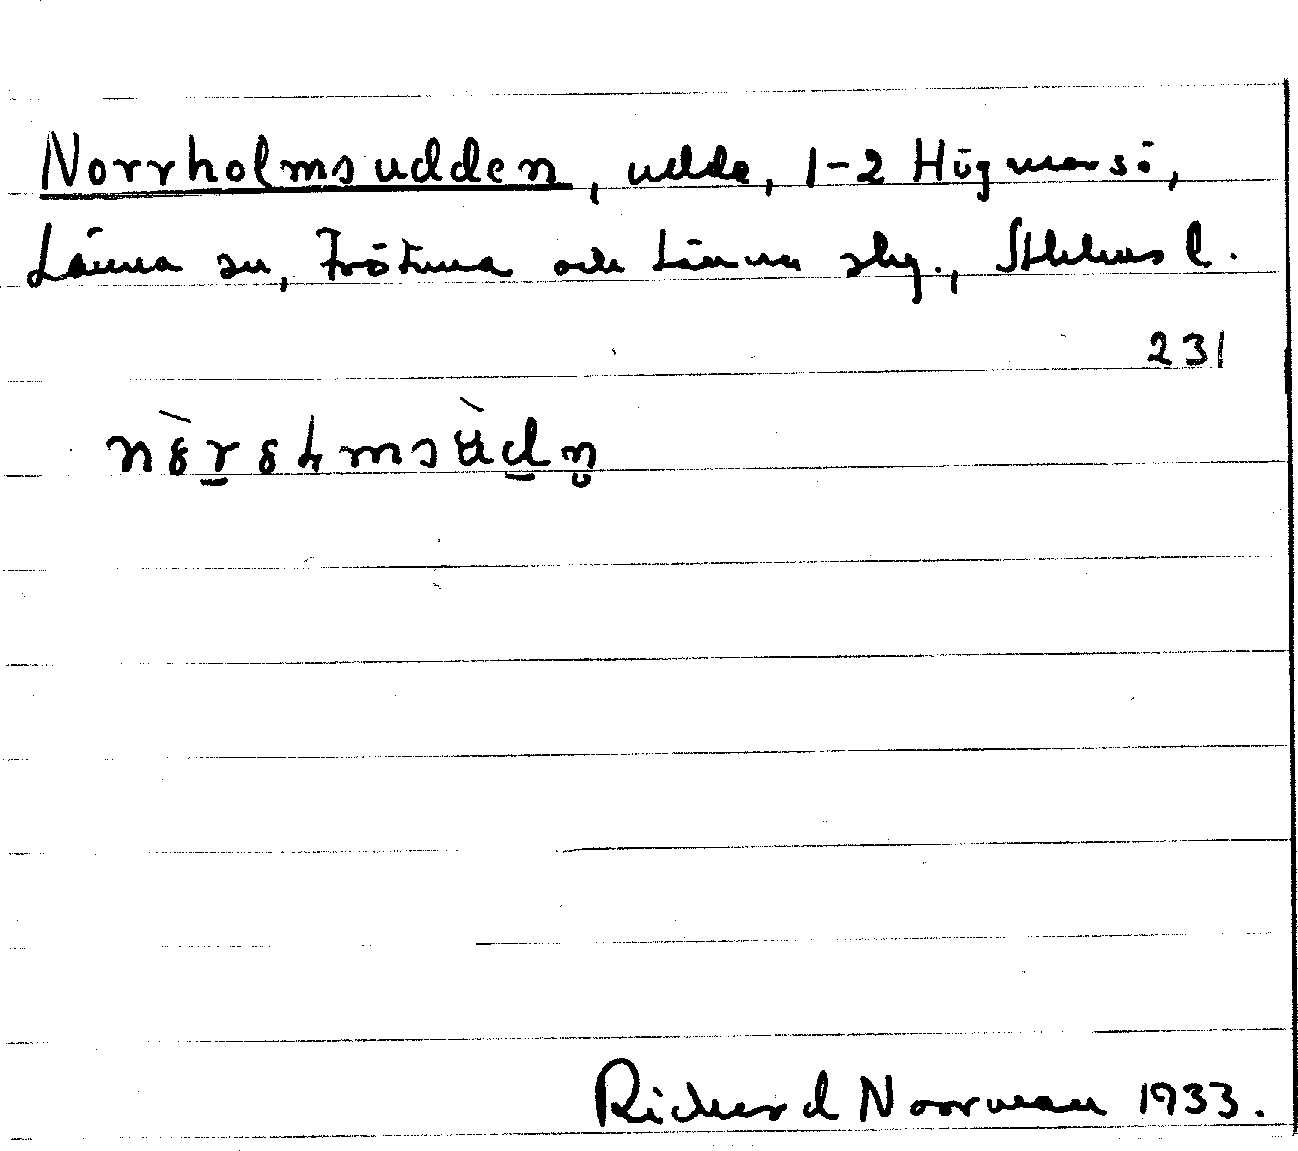 Norrholmsudden, udde, 1-2 Högmarsö,
Länna sn, Frötuna och Länna skg., Sthlms l.
231
Richard Norrman 1933.